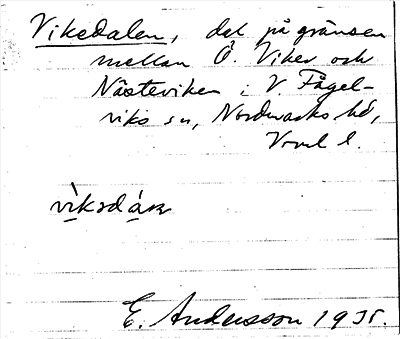 Vikedalen, del på gränsen
mellan Ö. Viker och
Näste viken i V. Fågel-
viks sn, Nordmarks hd,
Vrml l.
vìksdάɴ
E. Andersson 1935.